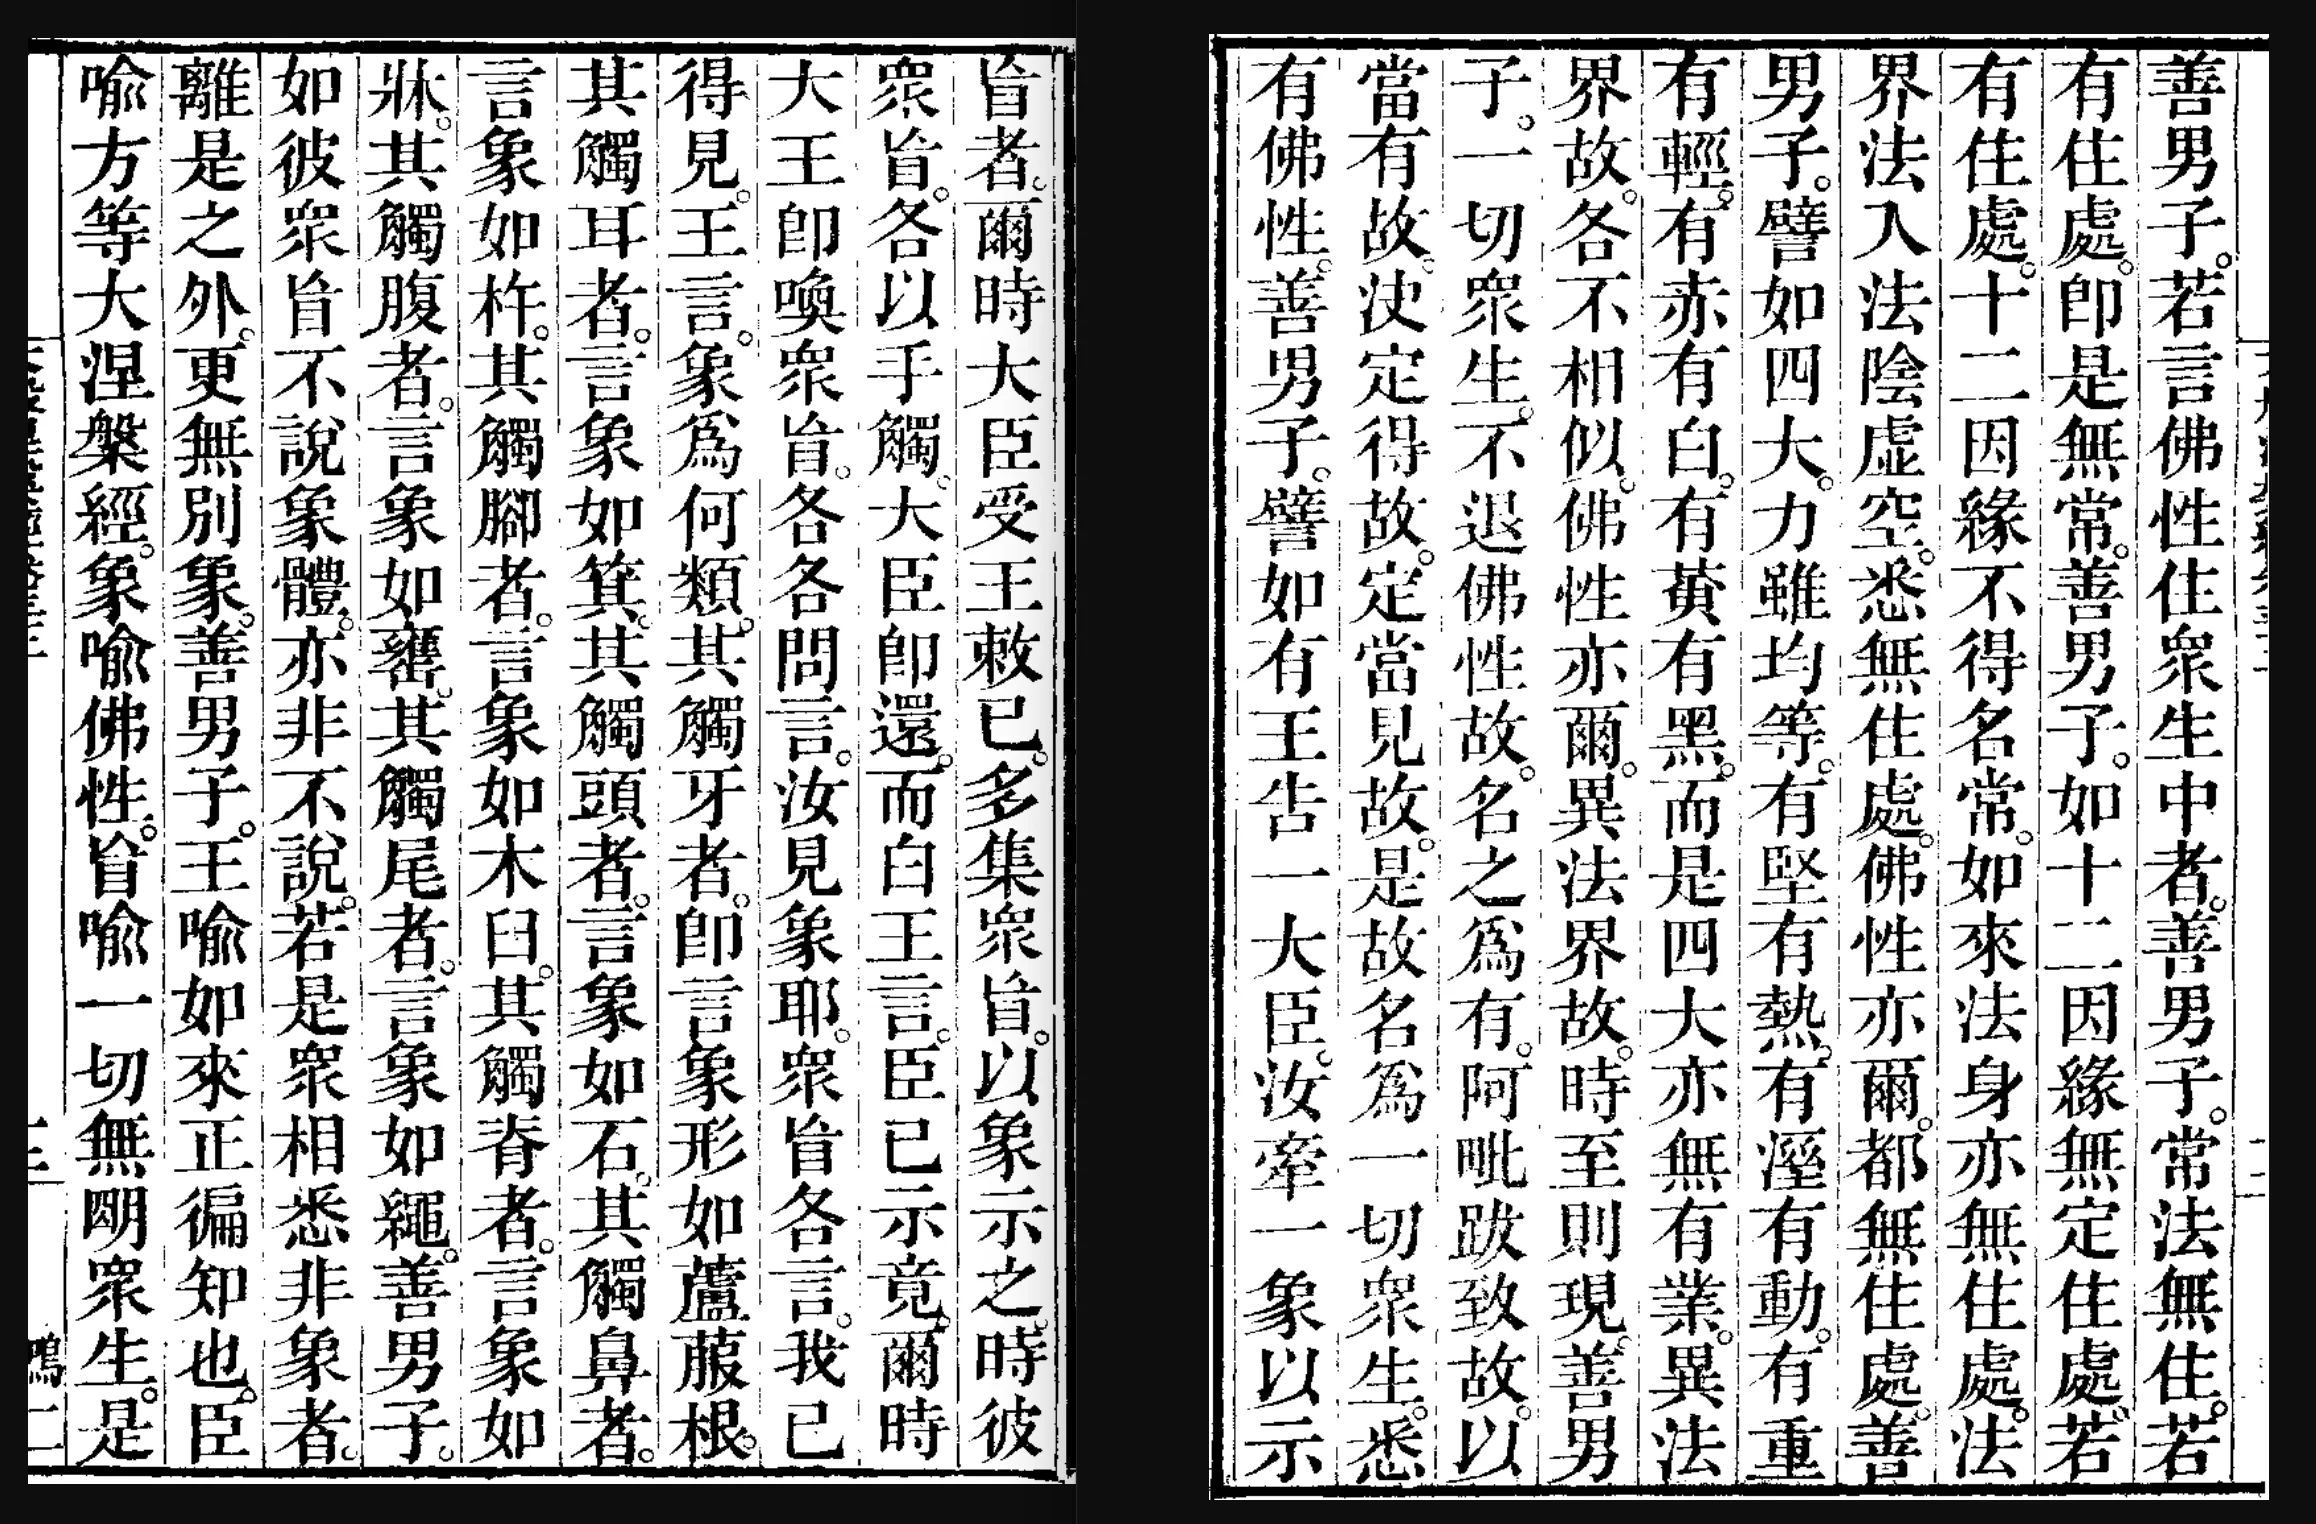 善男子。若言佛性住衆生中者。善男子。常法無住。若
有住處。卽是無常。善男子。如十二因緣無定住處。若
有住處。十二因緣不得名常。如來法身亦無住處。法
界法入法陰虛空。悉無住處。佛性亦爾。都無住處。善
男子。譬如四大。力雖均等。有堅有熱。有溼有動。有重
有輕。有赤有白。有黃有黑。而是四大亦無有業。異法
界故。各不相似。佛性亦爾。異法界故。時至則現。善男
子。一切衆生。不退佛性故。名之爲有。阿毗跋致故。以
當有故。決定得故。定當見故。是故名爲一切衆生。悉
有佛性。善男子。譬如有王告一大臣。汝牽一象以示
盲者。爾時大臣受王敕已。多集衆盲。以象示之。時彼
衆盲。各以手觸。大臣卽還。而白王言。臣已示竟。爾時
大王卽喚衆盲。各各問言。汝見象耶。衆盲各言。我已
得見。王言。象爲何類。其觸牙者。卽言象形如蘆菔根。
其觸耳者。言象如箕。其觸頭者。言象如石。其觸鼻者。
言象如杵。其觸腳者。言象如木臼。其觸脊者。言象如
牀。其觸腹者。言象如甕。其觸尾者。言象如繩。善男子。
如彼衆盲不說象體。亦非不說。若是衆相悉非象者。
離是之外。更無別象。善男子。王喻如來正徧知也。臣
喻方等大涅槃經。象喻佛性。盲喻一切無明衆生。是